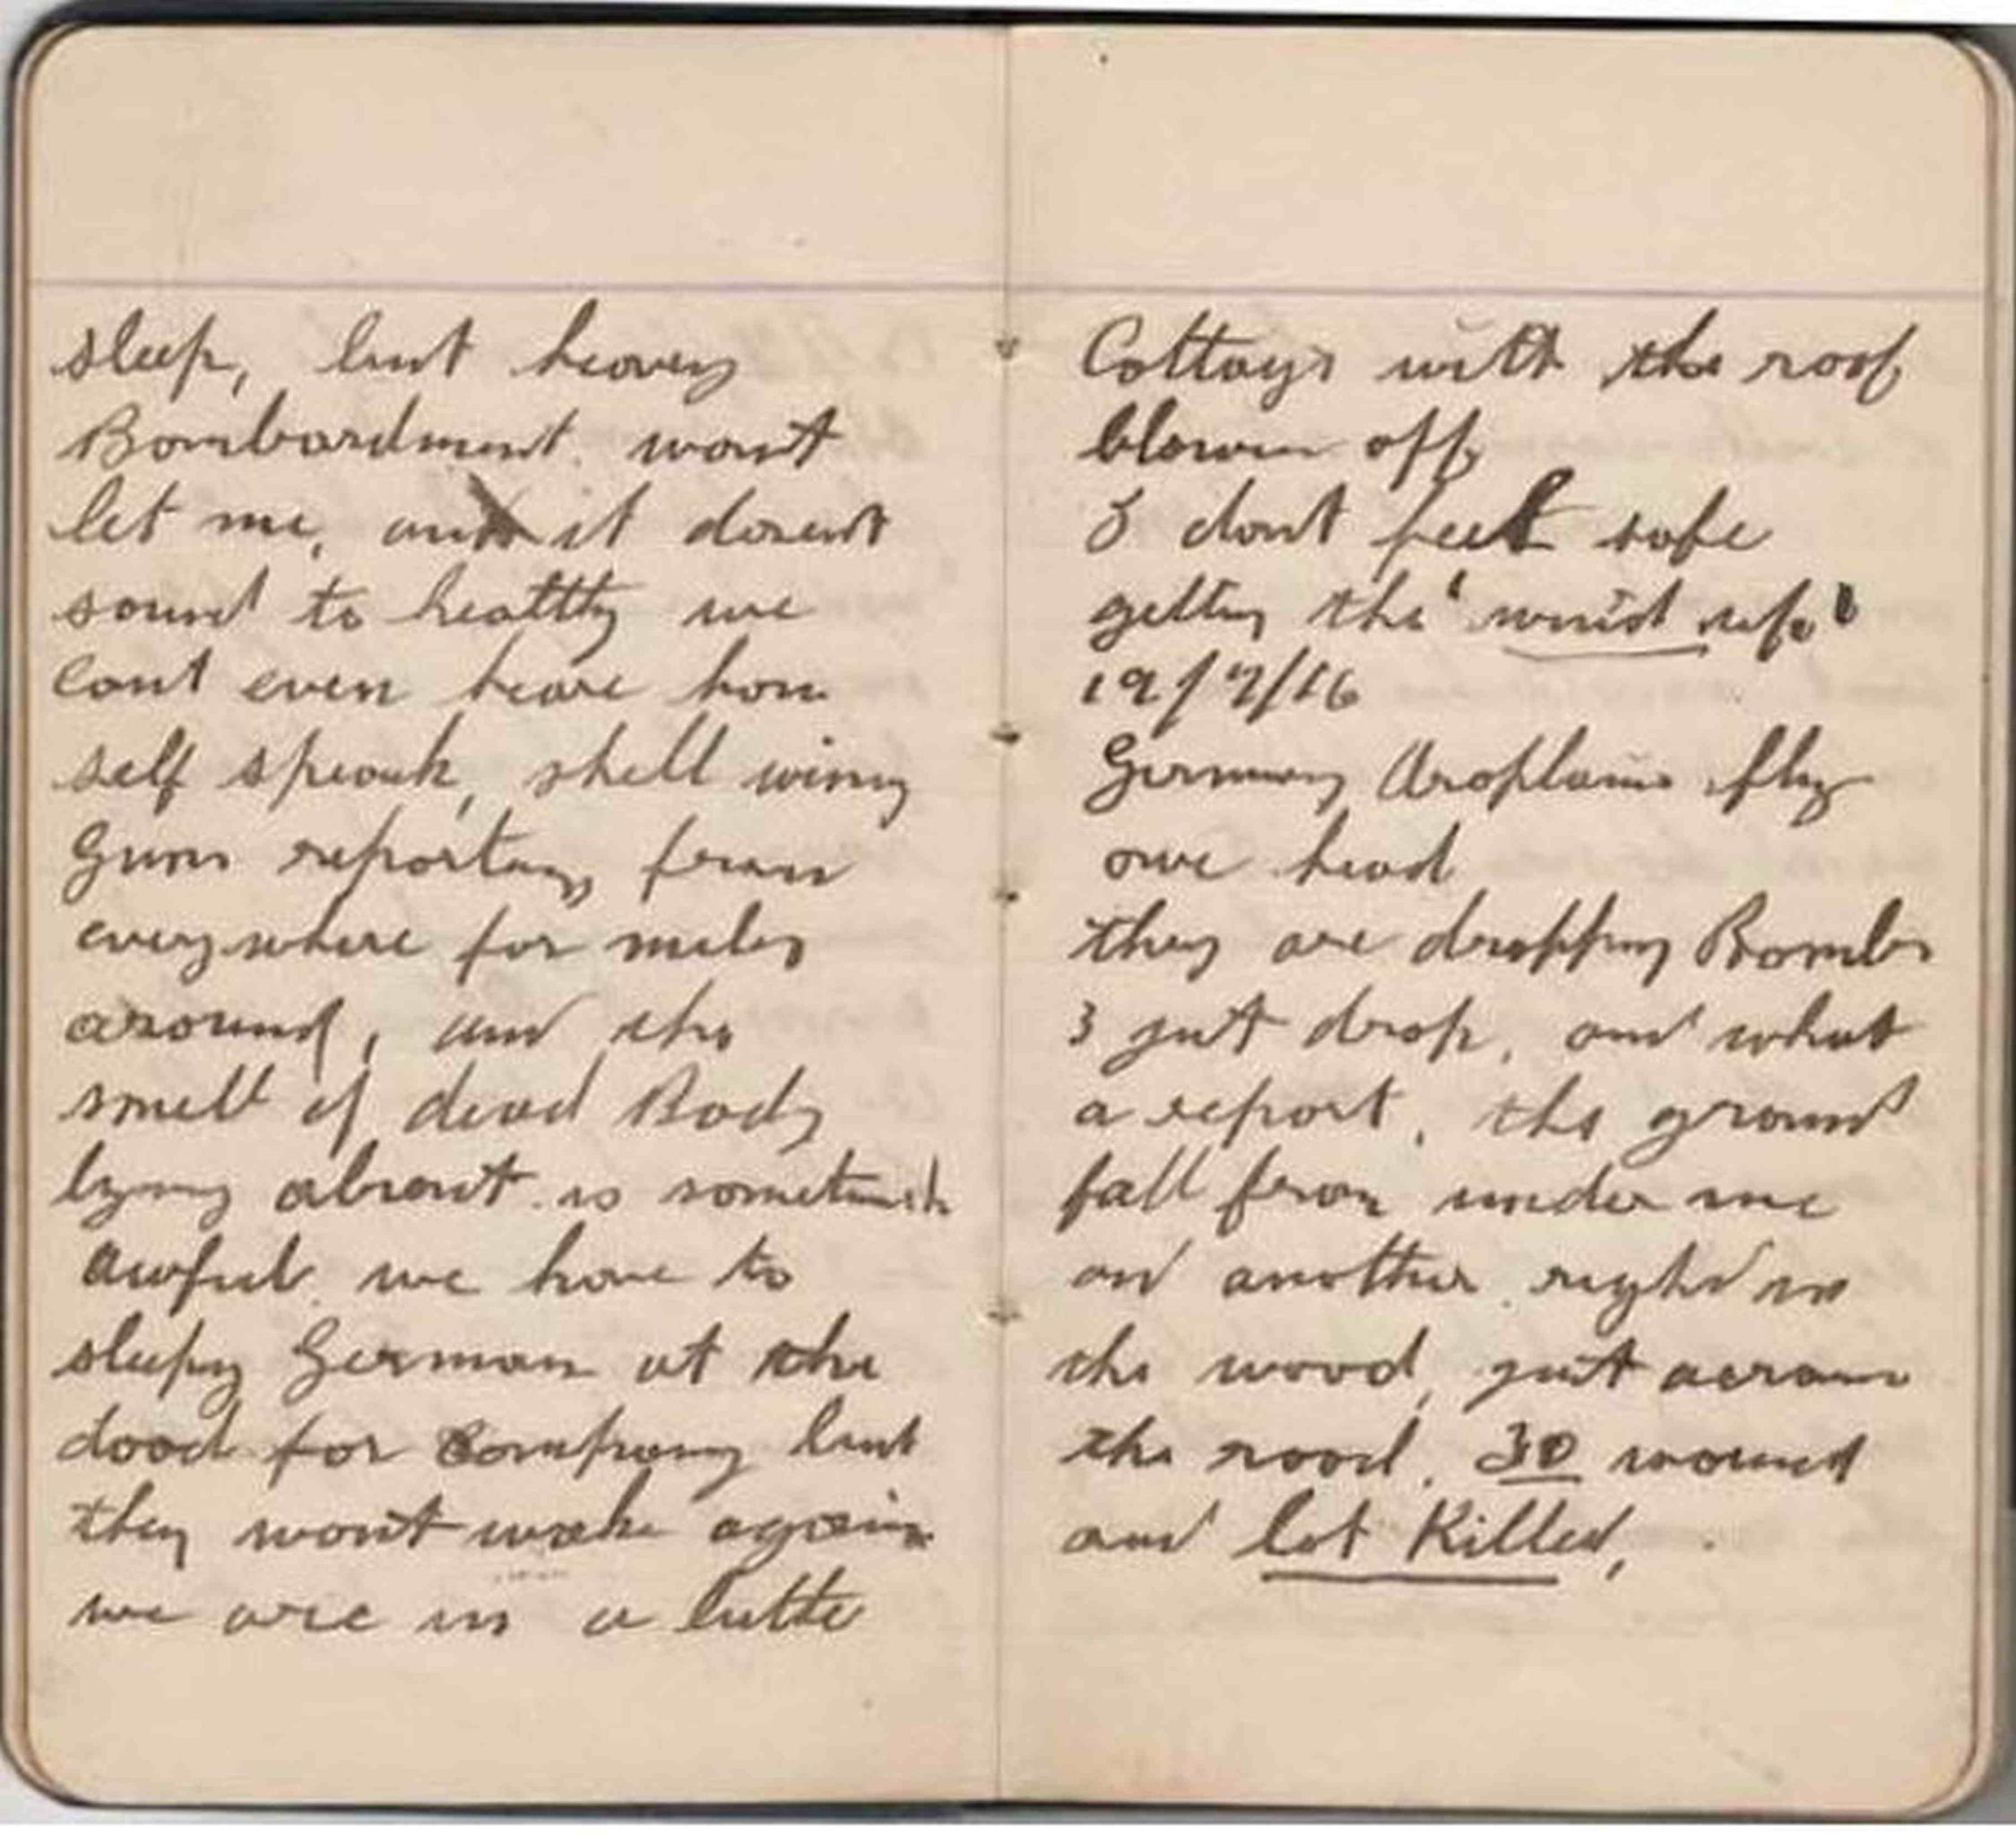 sleep, but heavey
Bombardment. wont
let me, and it dosent
sound to healtty we
cant even heare hour
self speack, shell wining
Guns reporting from
everywhere for miles
around, and the
smell of dead Body
lying about is sometimes
awful. we have to
sleeping German at the
dood for Company but
they wont wake again
we are in a little
Cottage with the roof
blown off
I dont feel safe
getting the 'wind up'
19/7/16
Germany Aroplains fly
ove head
they are dropping Bombs
3 just drop, and what
a report, the ground
fall from under me
and another right in
the wood, just across
the road. 30 wound
and lot Killed,